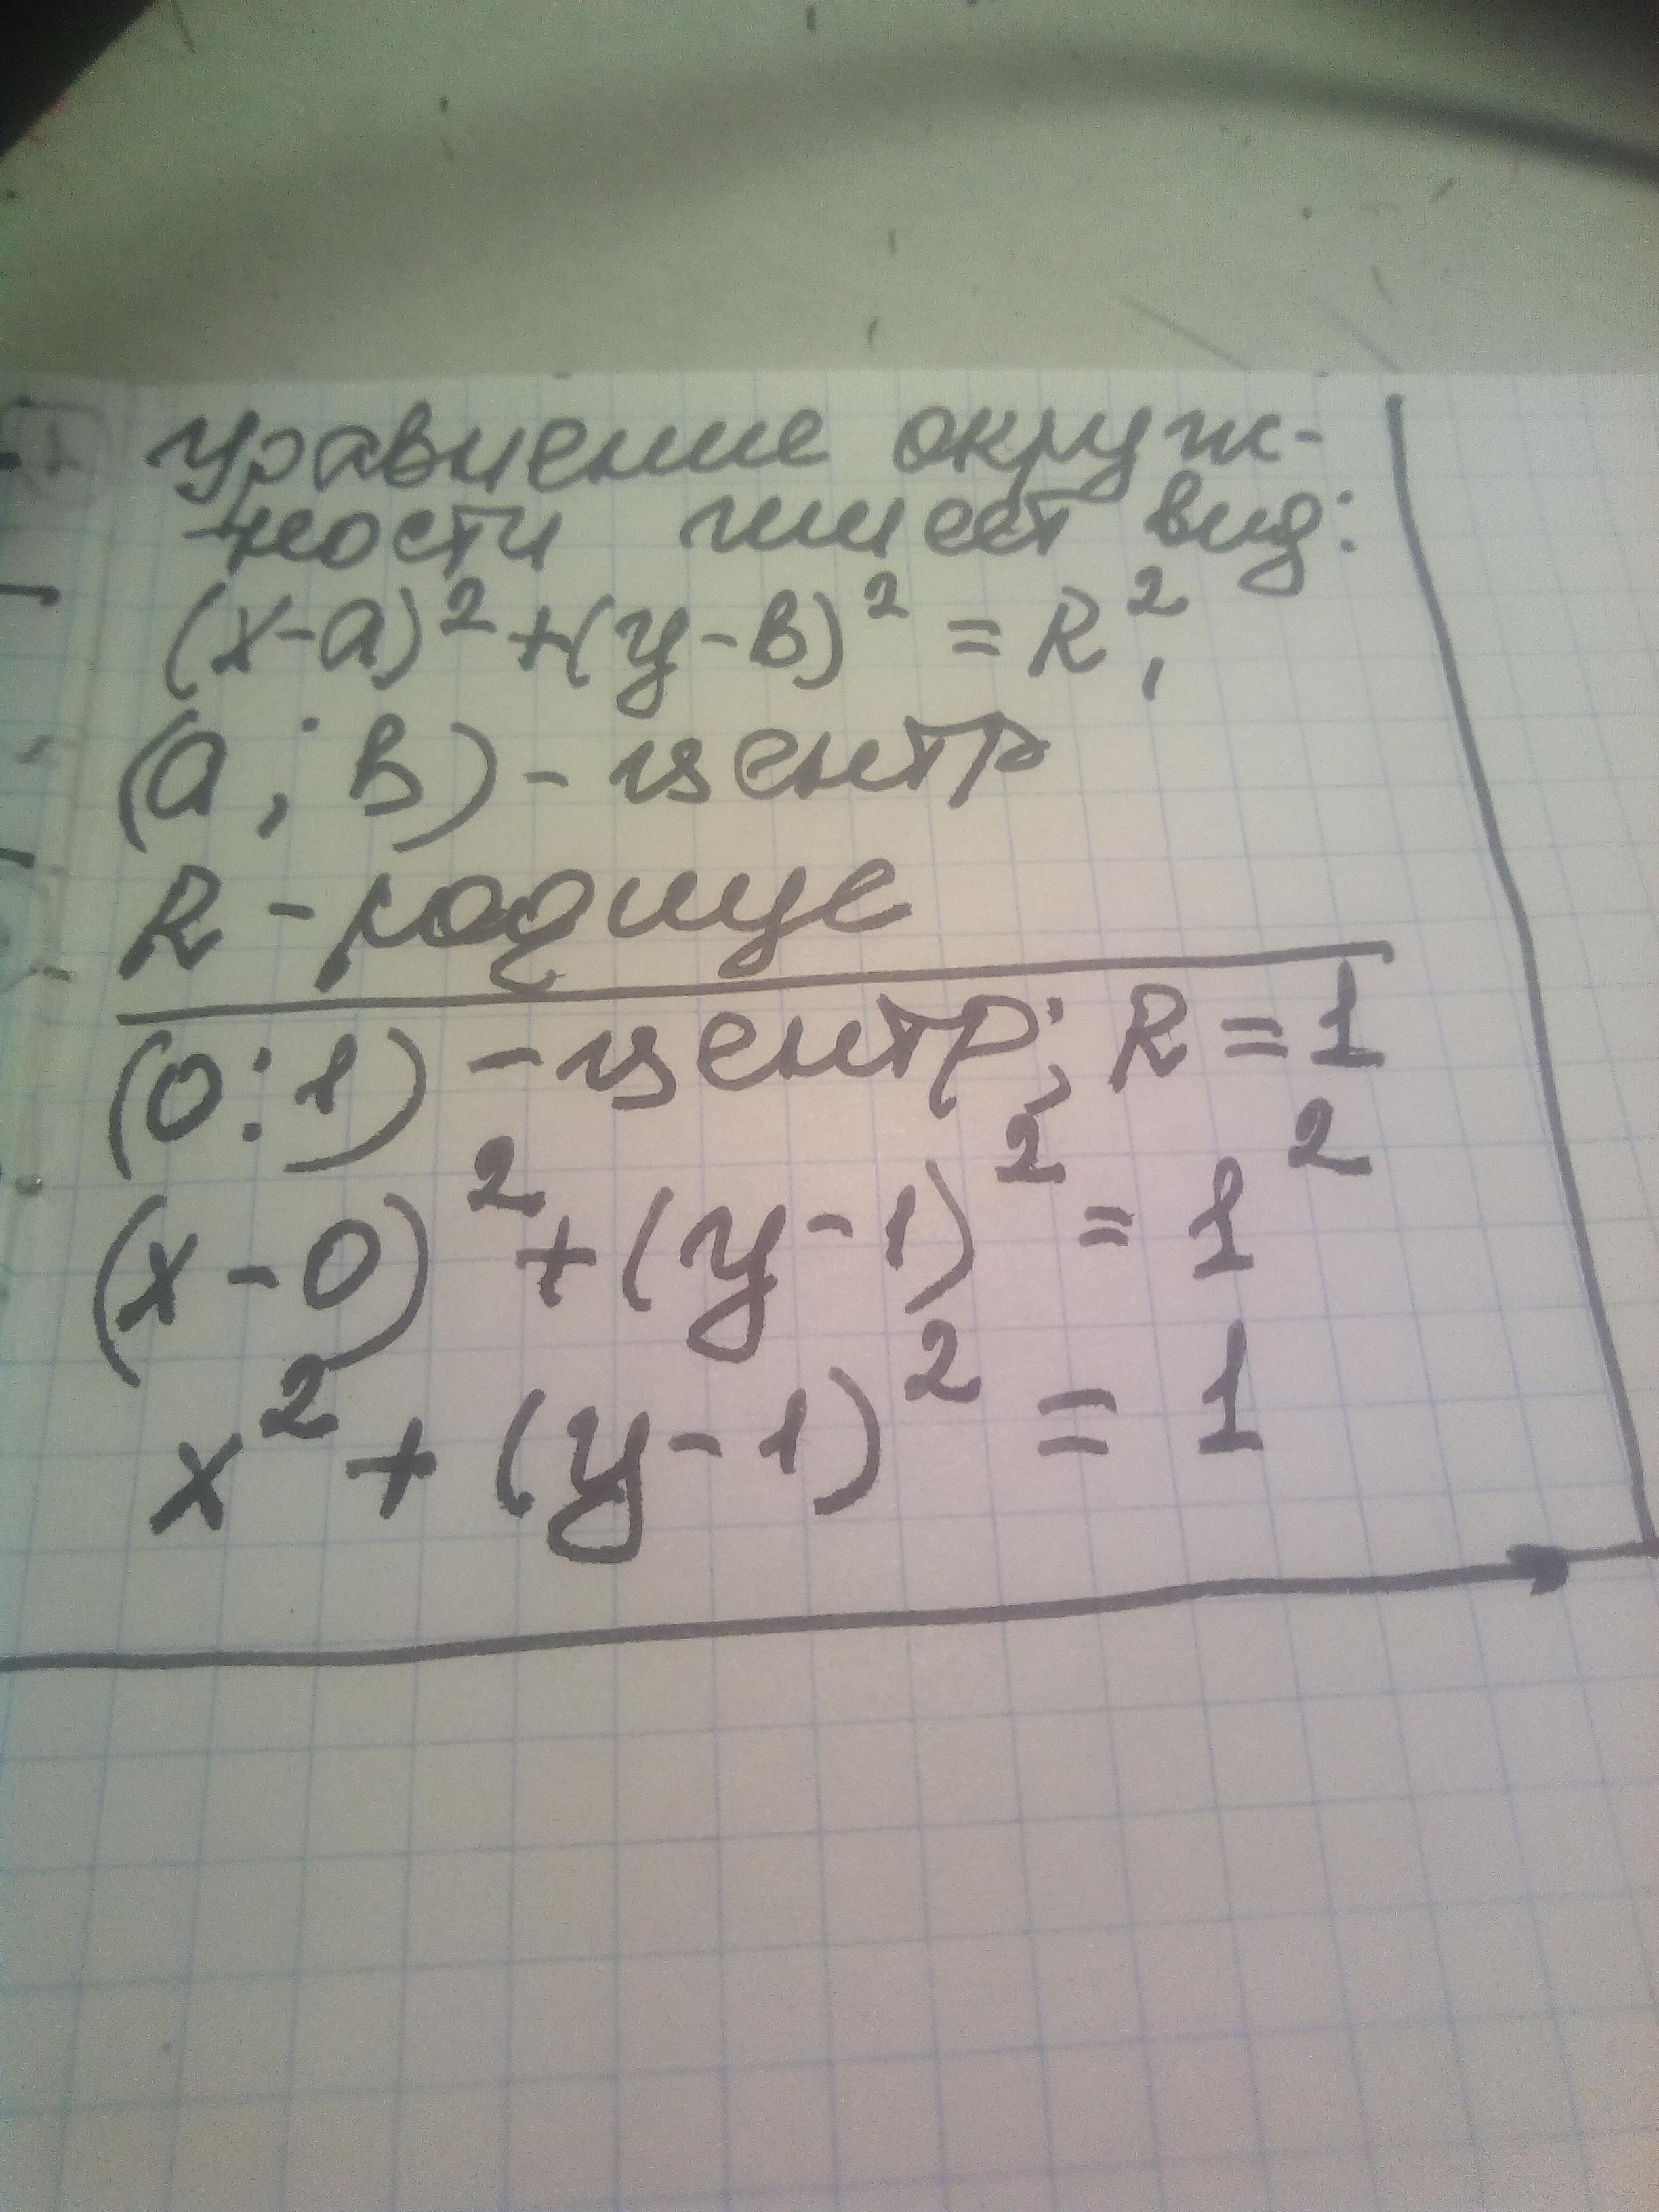 Уравнение окруж-
ности имеет вид:
(x-a)² + (y-в)² = R²,
(a ; в) - центр
R - радиус
(0 : 1) - центр; R = 1
(x - 0)² + (y - 1)² = 1²
x² + (y - 1)² = 1